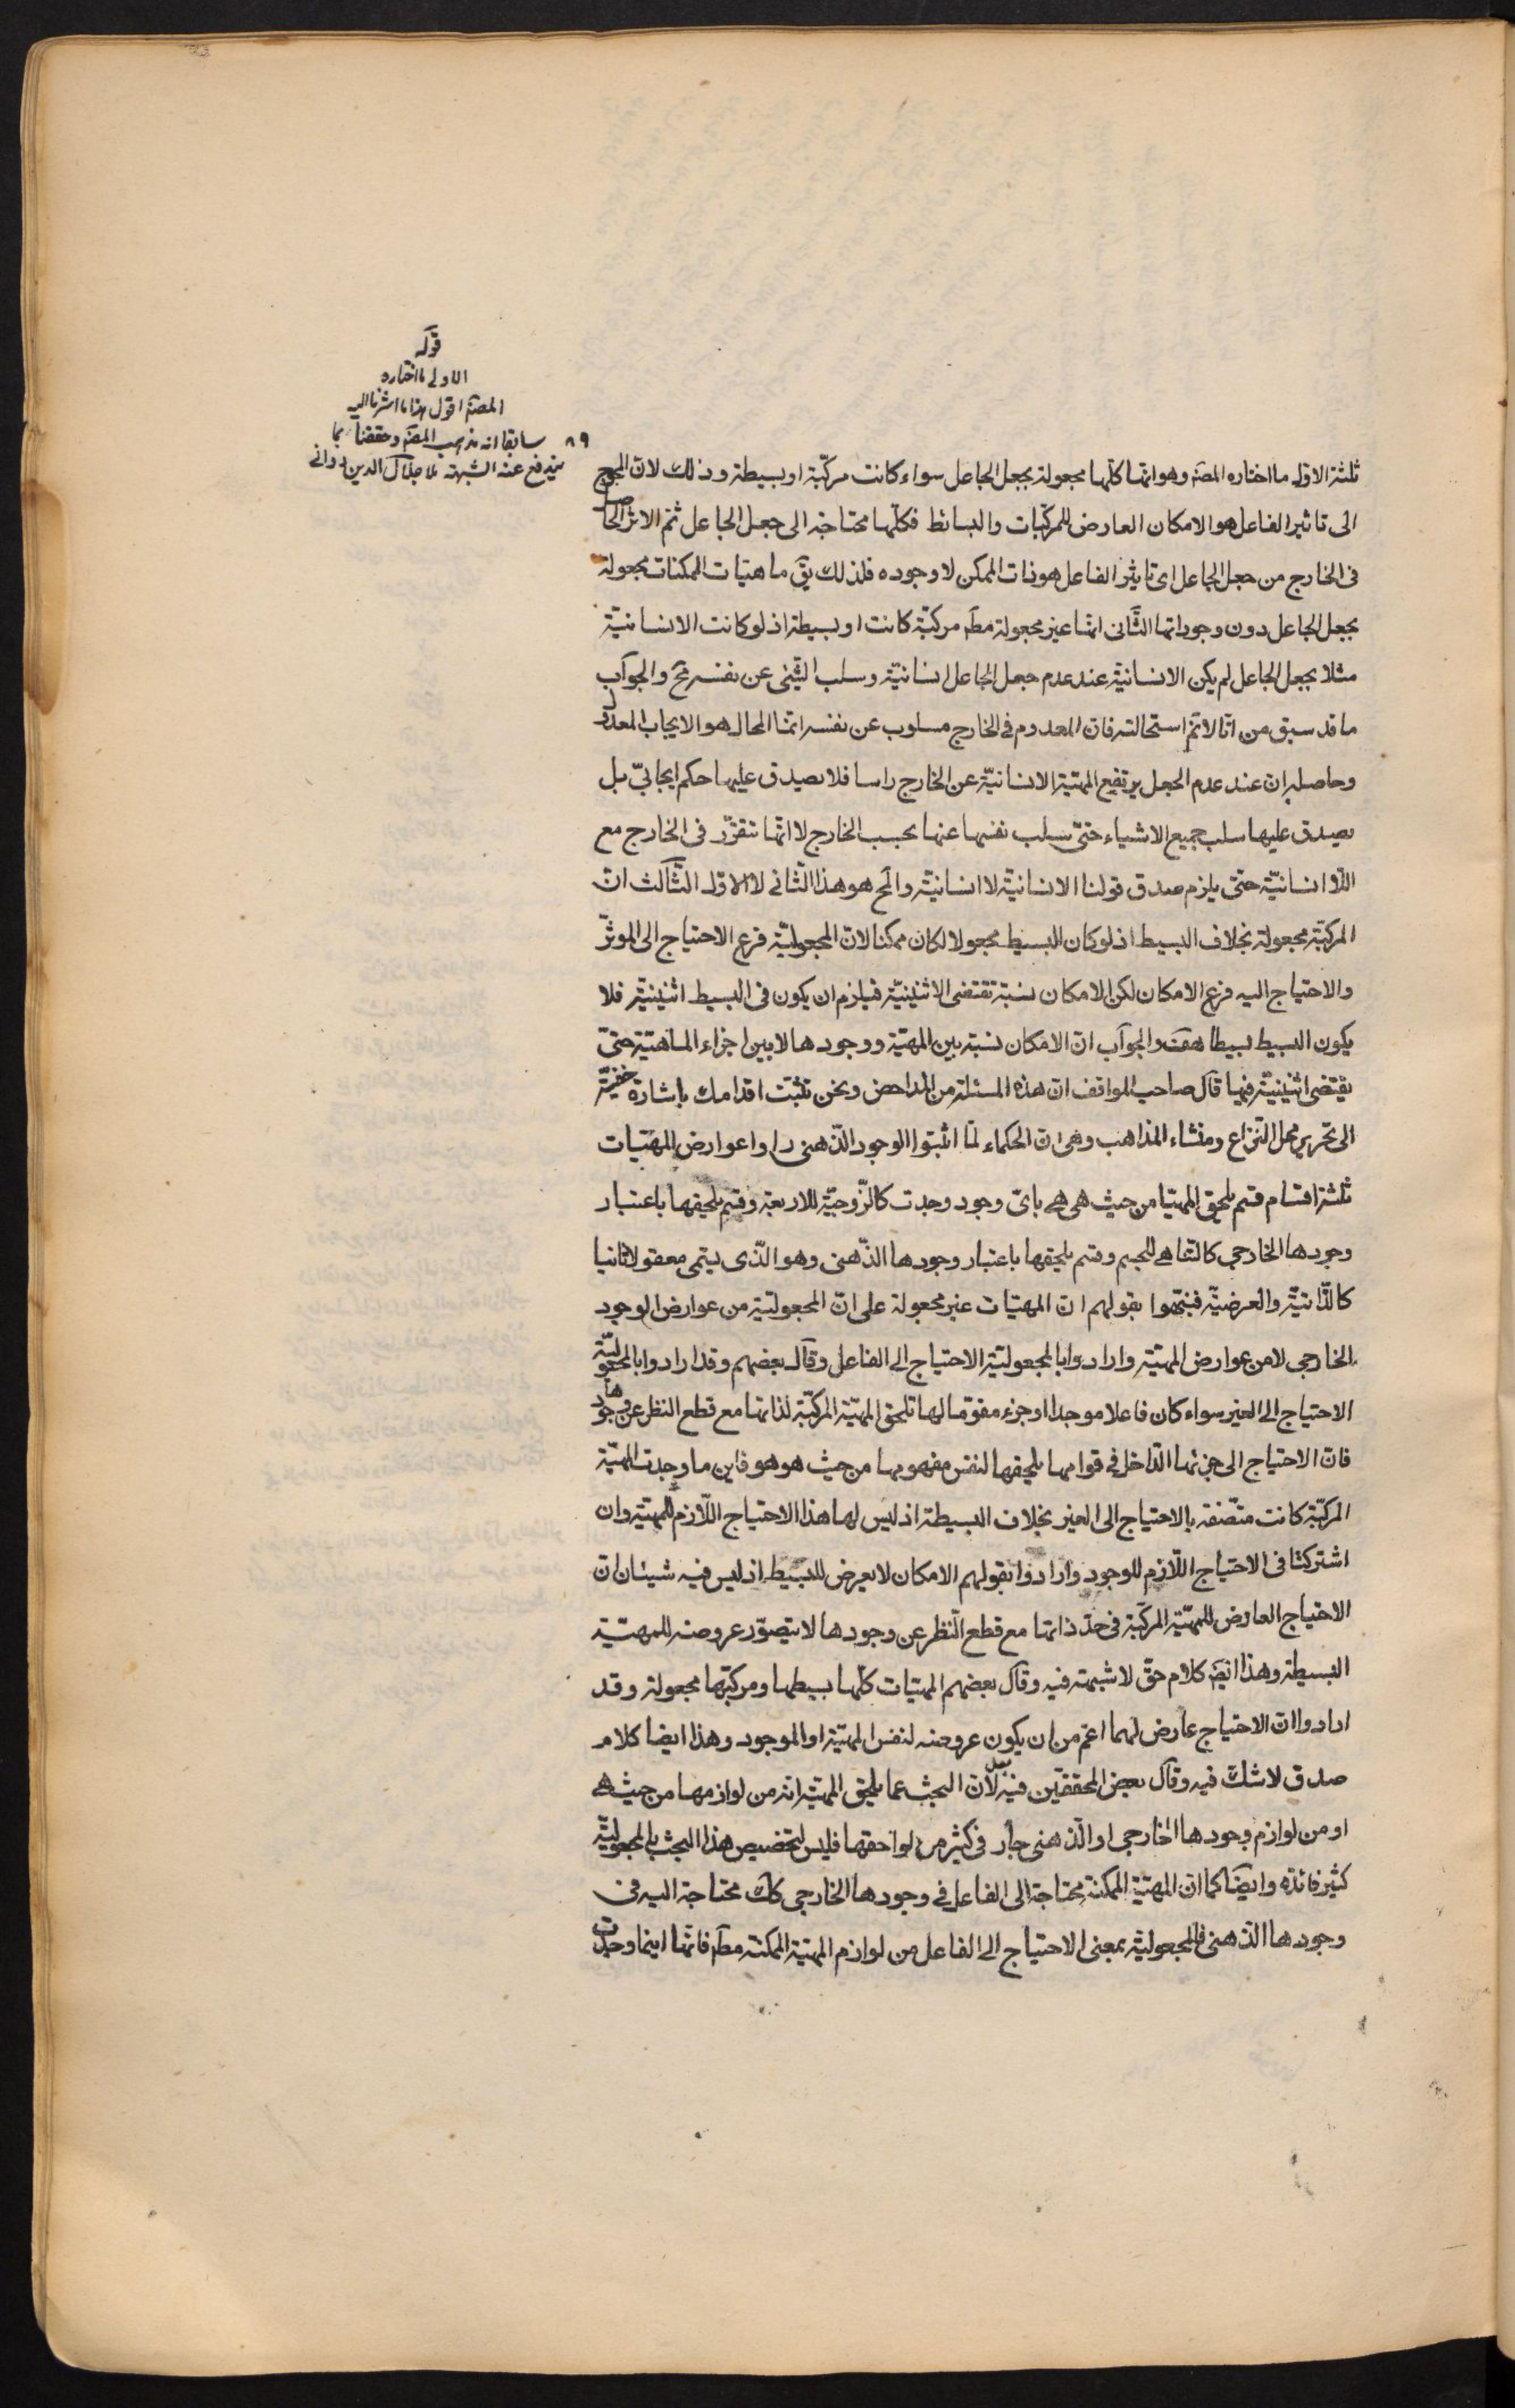 قوله
الاولى ما اختاره
المصنف اقول هذا ما اشرنا اليه
سابقا انه مذهب المصنف وحققنا بما
يندفع عنه الشبهة لملا جلال الدين دوانى
٨٩
ثلثة الاول ما اختاره المصـ وهو انها كلها مجعولة بجعل الجاعل سواء كانت مركّبة او بسيطة وذلك لان المحوج
الى تاثير الفاعل هو الامكان العارض للمركّبات والبسائط فكلّها محتاجة الى جعل الجاعل ثم الاثر الحاصل
فى الخارج من جعل الجاعل اى تاثير الفاعل هو ذات الممكن لا وجوده فلذلك يق ماهيّات الممكنات مجعولة
بجعل الجاعل دون وجوداتها الثّانى انها غير مجعولة مطـ مركبّة كانت او بسيطة اذ لو كانت الانسانيّة
مثلا بجعل الجاعل لم يكن الانسانيّة عند عدم جعل الجاعل انسانيّة وسلب الشّئ عن نفسه مح والجواب
ما قد سبق من انّا لا نم استحالته فان المعدوم فى الخارج مسلوب عن نفسه انما المحال هو الايجاب المعدول
وحاصله ان عند عدم الجعل يرتفع المهيّة الانسانيّة عن الخارج راسا فلا يصدق عليها حكم ايجابىّ بل
يصدق عليها سلب جميع الاشياء حتىّ سلب نفسها عنها بحسب الخارج لا انّها تتقرّر فى الخارج مع
اللّا انسانيّة حتىّ يلزم صدق قولنا الانسانيّة لا انسانيّة والمح هو هذا الثّانى لا الاول الثّالث انّ
المركبّة مجعولة بخلاف البسيط اذ لو كان البسيط مجعولا لكان ممكنا لان المجعوليّة فرع الاحتياج الى الموثّر
والاحتياج اليه فرع الامكان لكن الامكان نسبة تقتضى الاثنينيّة فيلزم ان يكون فى البسيط اثنينيّة فلا
يكون البسيط بسيطا هف والجواب انّ الامكان نسبة بين المهيّة ووجودها لا بين اجزاء الماهيّة حتىّ
يقتضى اثنينيّة فيها قال صاحب المواقف ان هذه المسئلة من المداحض ونحن نثبّت اقدامك باشارة خفيّة
الى تحرير محل النزاع ومنشاء المذاهب وهى ان الحكماء لمّا اثبتوا الوجود الذّهنى راوا عوارض المهيّات
ثلثة اقسام قسم يلحق المهيّات من حيث هى هى باىّ وجود وجدت كالزّوجيّة للاربعة وقسم يلحقها باعتبار
وجودها الخارجى كالتّناهى للجسم وقسم يلحقها باعتبار وجودها الذّهنى وهو الّذى يسمّى معقولا ثانيا
كالذّاتيّة والعرضيّة فنبّهوا بقولهم ان المهيّات غير مجعولة على انّ المجعوليّة من عوارض الوجود
الخارجى لا من عوارض المهيّة وارادوا بالمجعوليّة الاحتياج الى الفاعل وقال بعضهم وقد ارادوا بالمجعوليّة
الاحتياج الى الغير سواء كان فاعلا موجدا او جزء مقوّما لها تلحق المهيّة المركّبة لذاتها مع قطع النظر عن وجودها
فان الاحتياج الى جزئها الدّاخل فى قوامها يلحقها لنفس مفهومها من حيث هو هو فاين ما وجدت المهيّة
المركّبة كانت متّصفة بالاحتياج الى الغير بخلاف البسيطة اذ ليس لها هذا الاحتياج اللّازم للمهيّة وان
اشتركتا فى الاحتياج اللّازم للوجود وارادوا بقولهم الامكان لا يعرض للبسيط اذ ليس فيه شيئان انّ
الاحتياج العارض للمهيّة المركّبة فى حدّ ذاتها مع قطع النّظر عن وجودها لا يتصوّر عروضه للمهيّة
البسيطة وهذا ايضـ كلام حقّ لا شبهة فيه وقال بعضهم المهيّات كلّها بسيطها ومركبّها مجعولة وقد
ارادوا ان الاحتياج عارض لهما اعم من ان يكون عروضه لنفس المهيّة او الموجود وهذا ايضا كلام
صدق لا شك فيه وقال بعض المحققّين فيه بعد لان البحث عما يلحق المهيّة انه من لوازمها من حيث هى
او من لوازم وجودها الخارجى او الذّهنى جار فى كثير من لواحقها فليس لتخصيص هذا البحث بالمجعوليّة
كثير فائدة وايضا كما ان المهيّة الممكنة محتاجة الى الفاعل فى وجودها الخارجى كك محتاجة اليه فى
وجودها الذهنى فالمجعوليّة بمعنى الاحتياج الى الفاعل من لوازم المهيّة الممكنة مطـ فانّها اينما وجدت